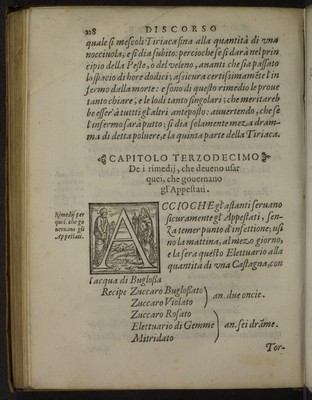 228 DISCORSO
quale si mescoli Tiriaca fina alla quantità di vna
nocciuola, e si dia subito: percioche se si darà nel prin
cipio della Peste, ò del veleno, auanti che sia passato
lo spacio di hore dodici, assicura certissimamẽte l'in
fermo dalla morte: e sono di questo rimedio le proue
tanto chiare, e le lodi tanto singolari; che meritareb
be esser' à tutti gl'altri anteposto: auuertendo, che se
l'infermo sarà putto; si dia solamente meza dram-
ma di detta poluere, e la quinta parte della Tiriaca.
CAPITOLO TERZODECIMO
De i rimedij, che deueno vsar
quei, che gouernano
gl'Appestati.
Rimedij per
quei, che go
uernano gli
Appestati.
ACCIOCHE gl'astanti seruano
sicuramente gl'Appestati, sen-
za temer punto d'infettione; vsi
no la mattina, al mezo giorno,
e la sera questo Elettuario alla
quantità di vna Castagna, con
l'acqua di Buglossa
Recipe Zuccaro Buglossato
Zuccaro Violato
an. due oncie.
Zuccaro Rosato
Elettuario di Gemme
Mitridato
an. sei drãme.
Tor-